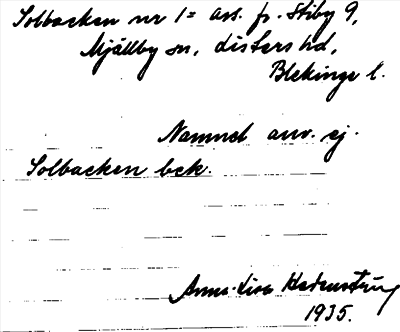 Solbacken nr 1 = avs. fr. Stiby 9,
Mjällby sn, Listers hd,
Blekinge l.
Namnet anv. ej.
Solbacken bek.
Anna-Lisa
1935.